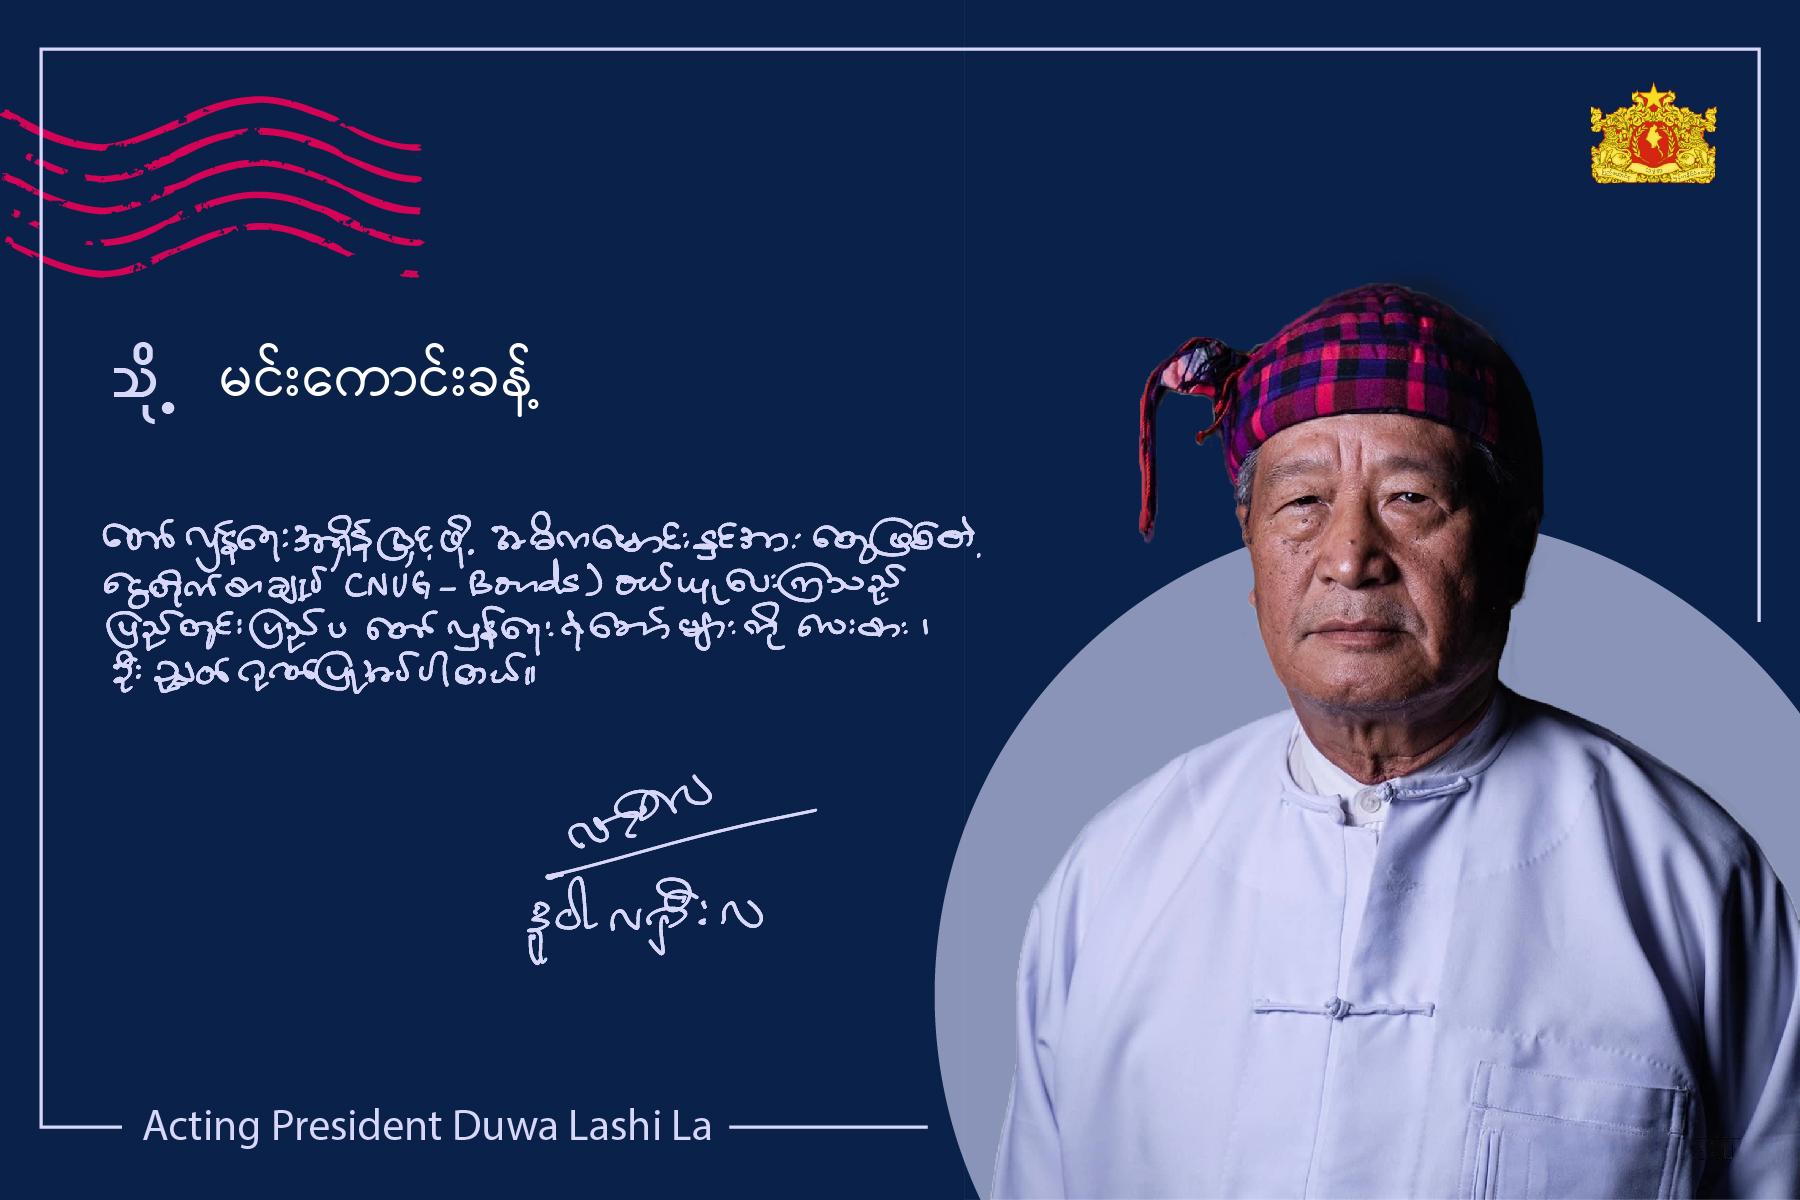 သို့ မင်းကောင်းခန့်
တော်လှန်ရေးအရှိန်မြှင့်ဖို့ အဓိကမောင်းနှင်အား တွေဖြစ်တဲ့
ငွေတိုက်စာချုပ် (NUG - Bonds) ဝယ်ယူပေးကြသည့်
ပြည်တွင်းပြည်ပ တော်လှန်ရေးရဲဘော်များကို လေးစား၊
ဦးညွှတ်ဂုဏ်ပြုအပ်ပါတယ်။
ဒူဝါလရှီးလ
Acting President Duwa Lashi La